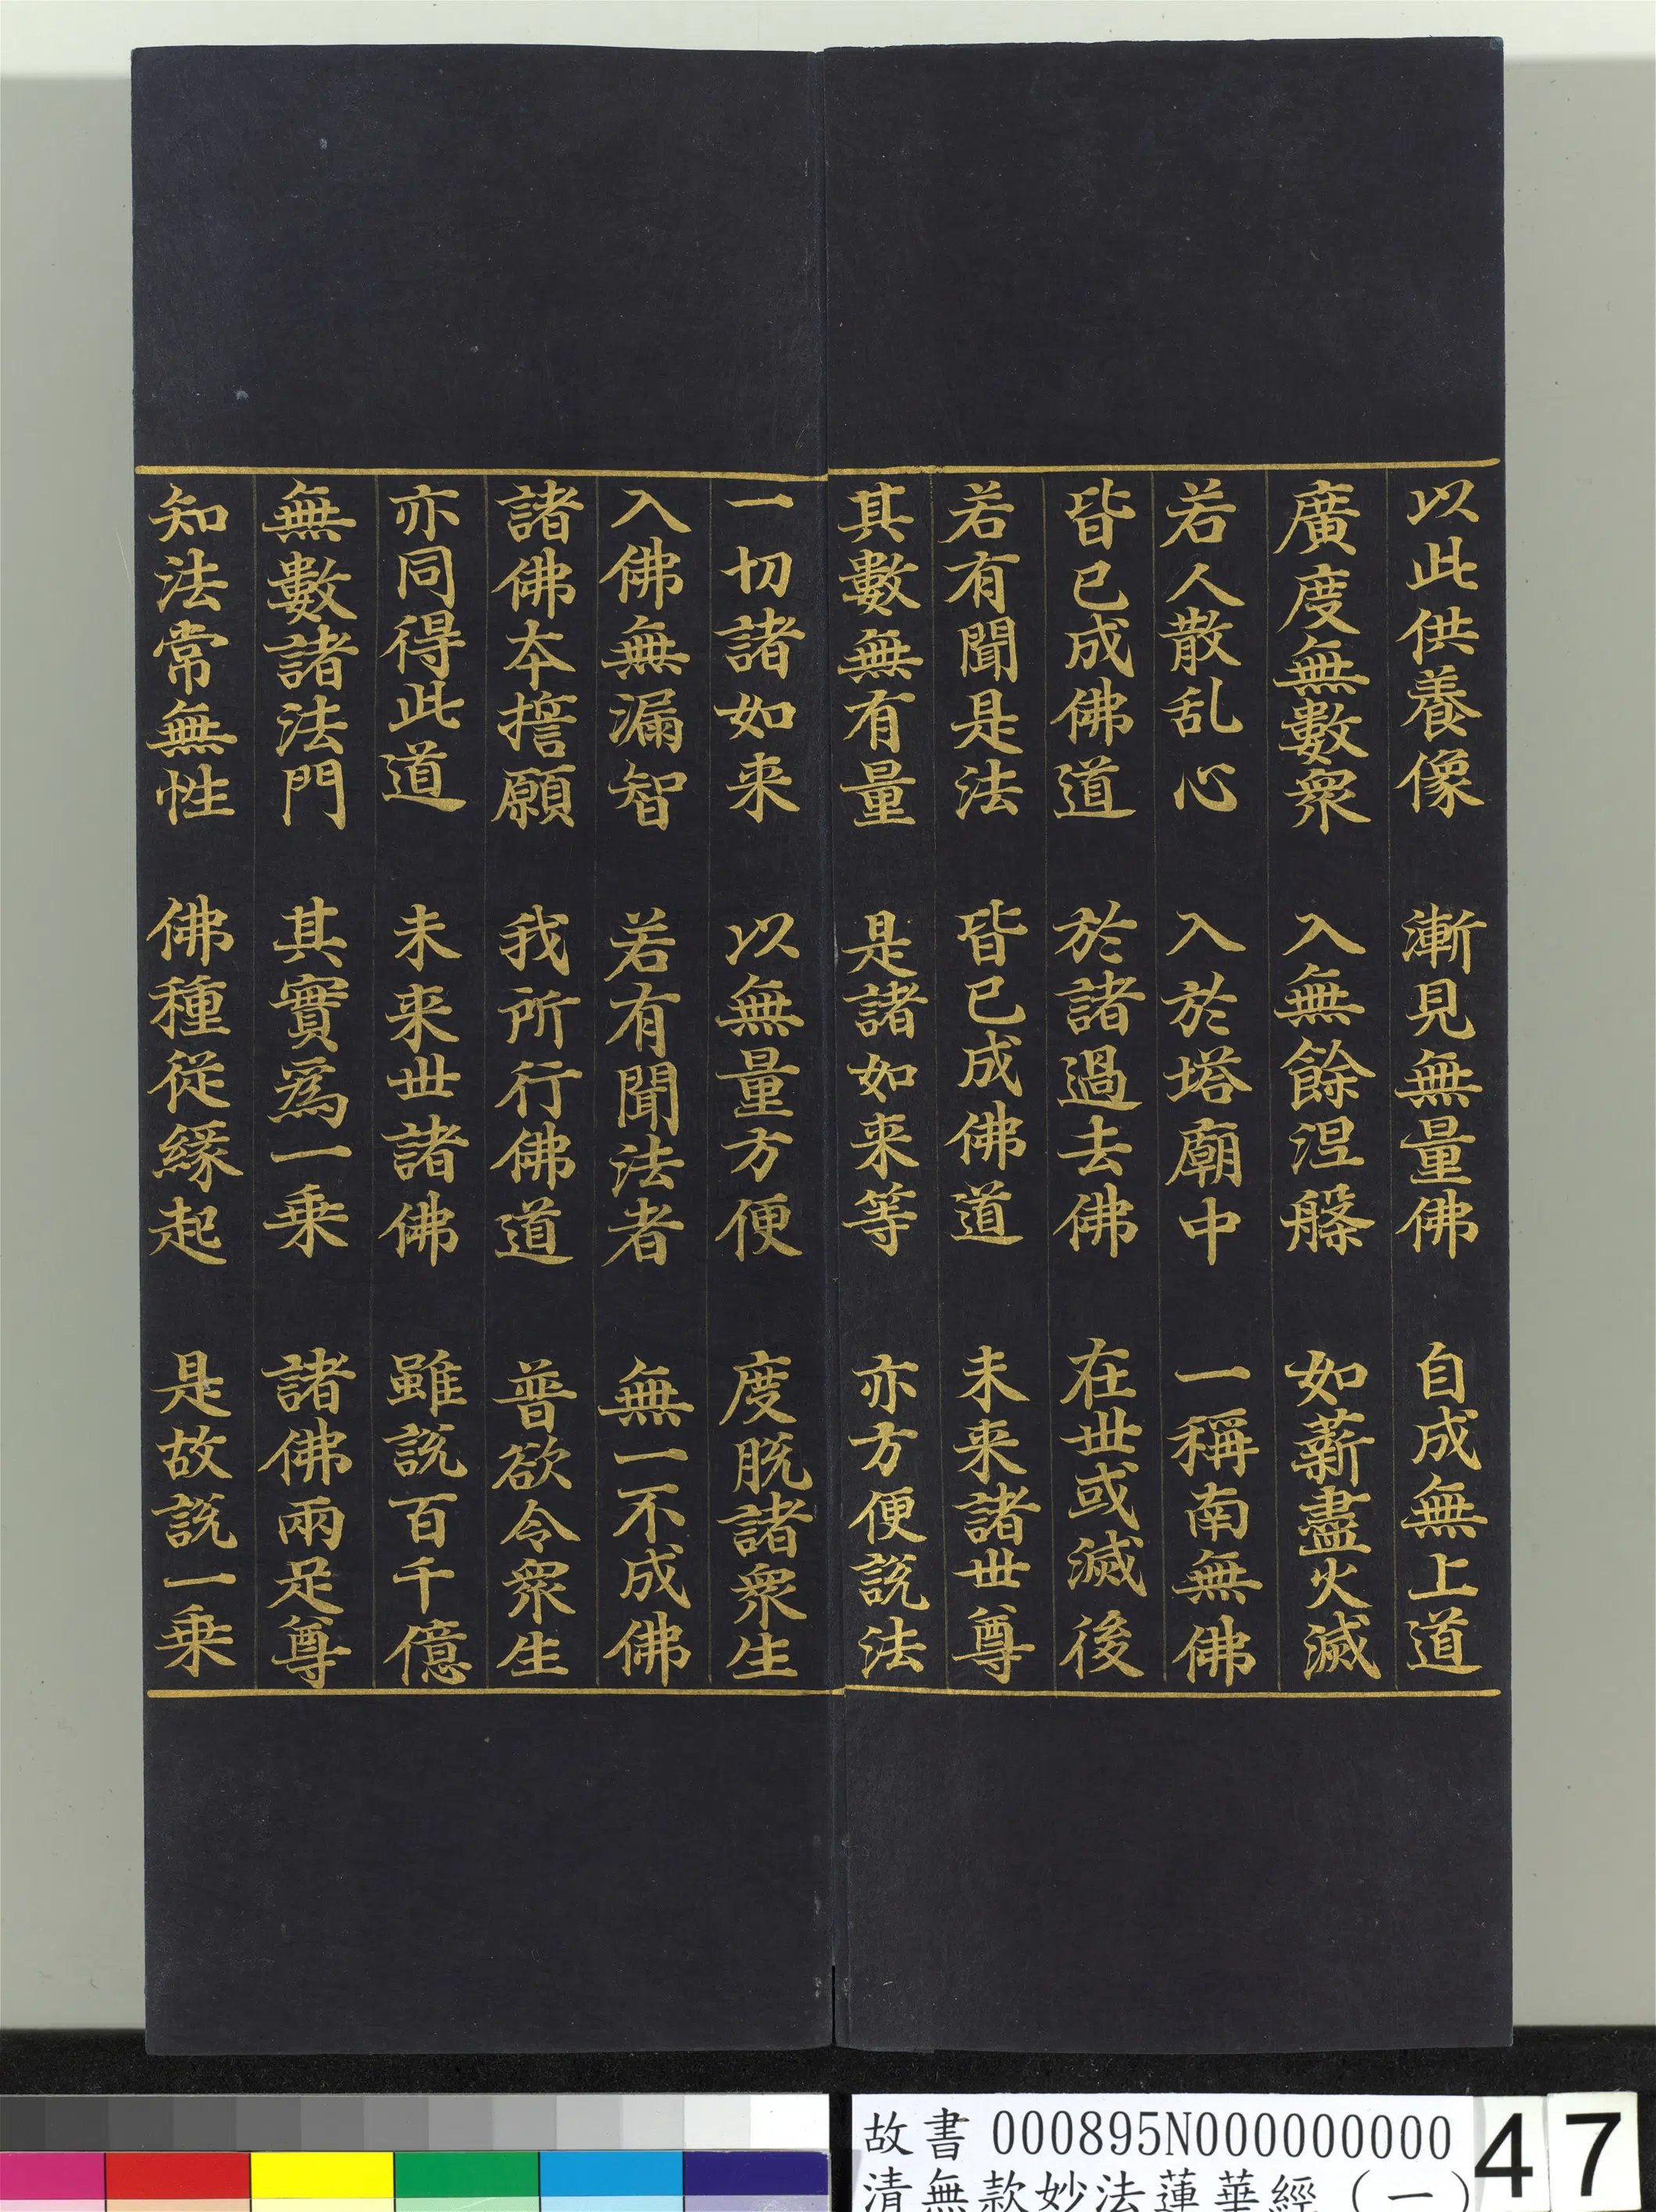 以此供養像　漸見無量佛　自成無上道
廣度無數衆　入無餘涅槃　如薪盡火滅
若人散乱心　入於塔廟中　一稱南無佛
皆已成佛道　於諸過去佛　在世或滅後
若有聞是法　皆已成佛道　未来諸世尊
其數無有量　是諸如来等　亦方便說法
一切諸如来　以無量方便　度脱諸衆生
入佛無漏智　若有聞法者　無一不成佛
諸佛本誓願　我所行佛道　普欲令衆生
亦同得此道　未来世諸佛　雖說百千億
無數諸法門　其實爲一乗　諸佛兩足尊
知法常無性　佛種從緣起　是故說一乗
故書 000895N000000000
清無款妙法蓮華經(一)
47